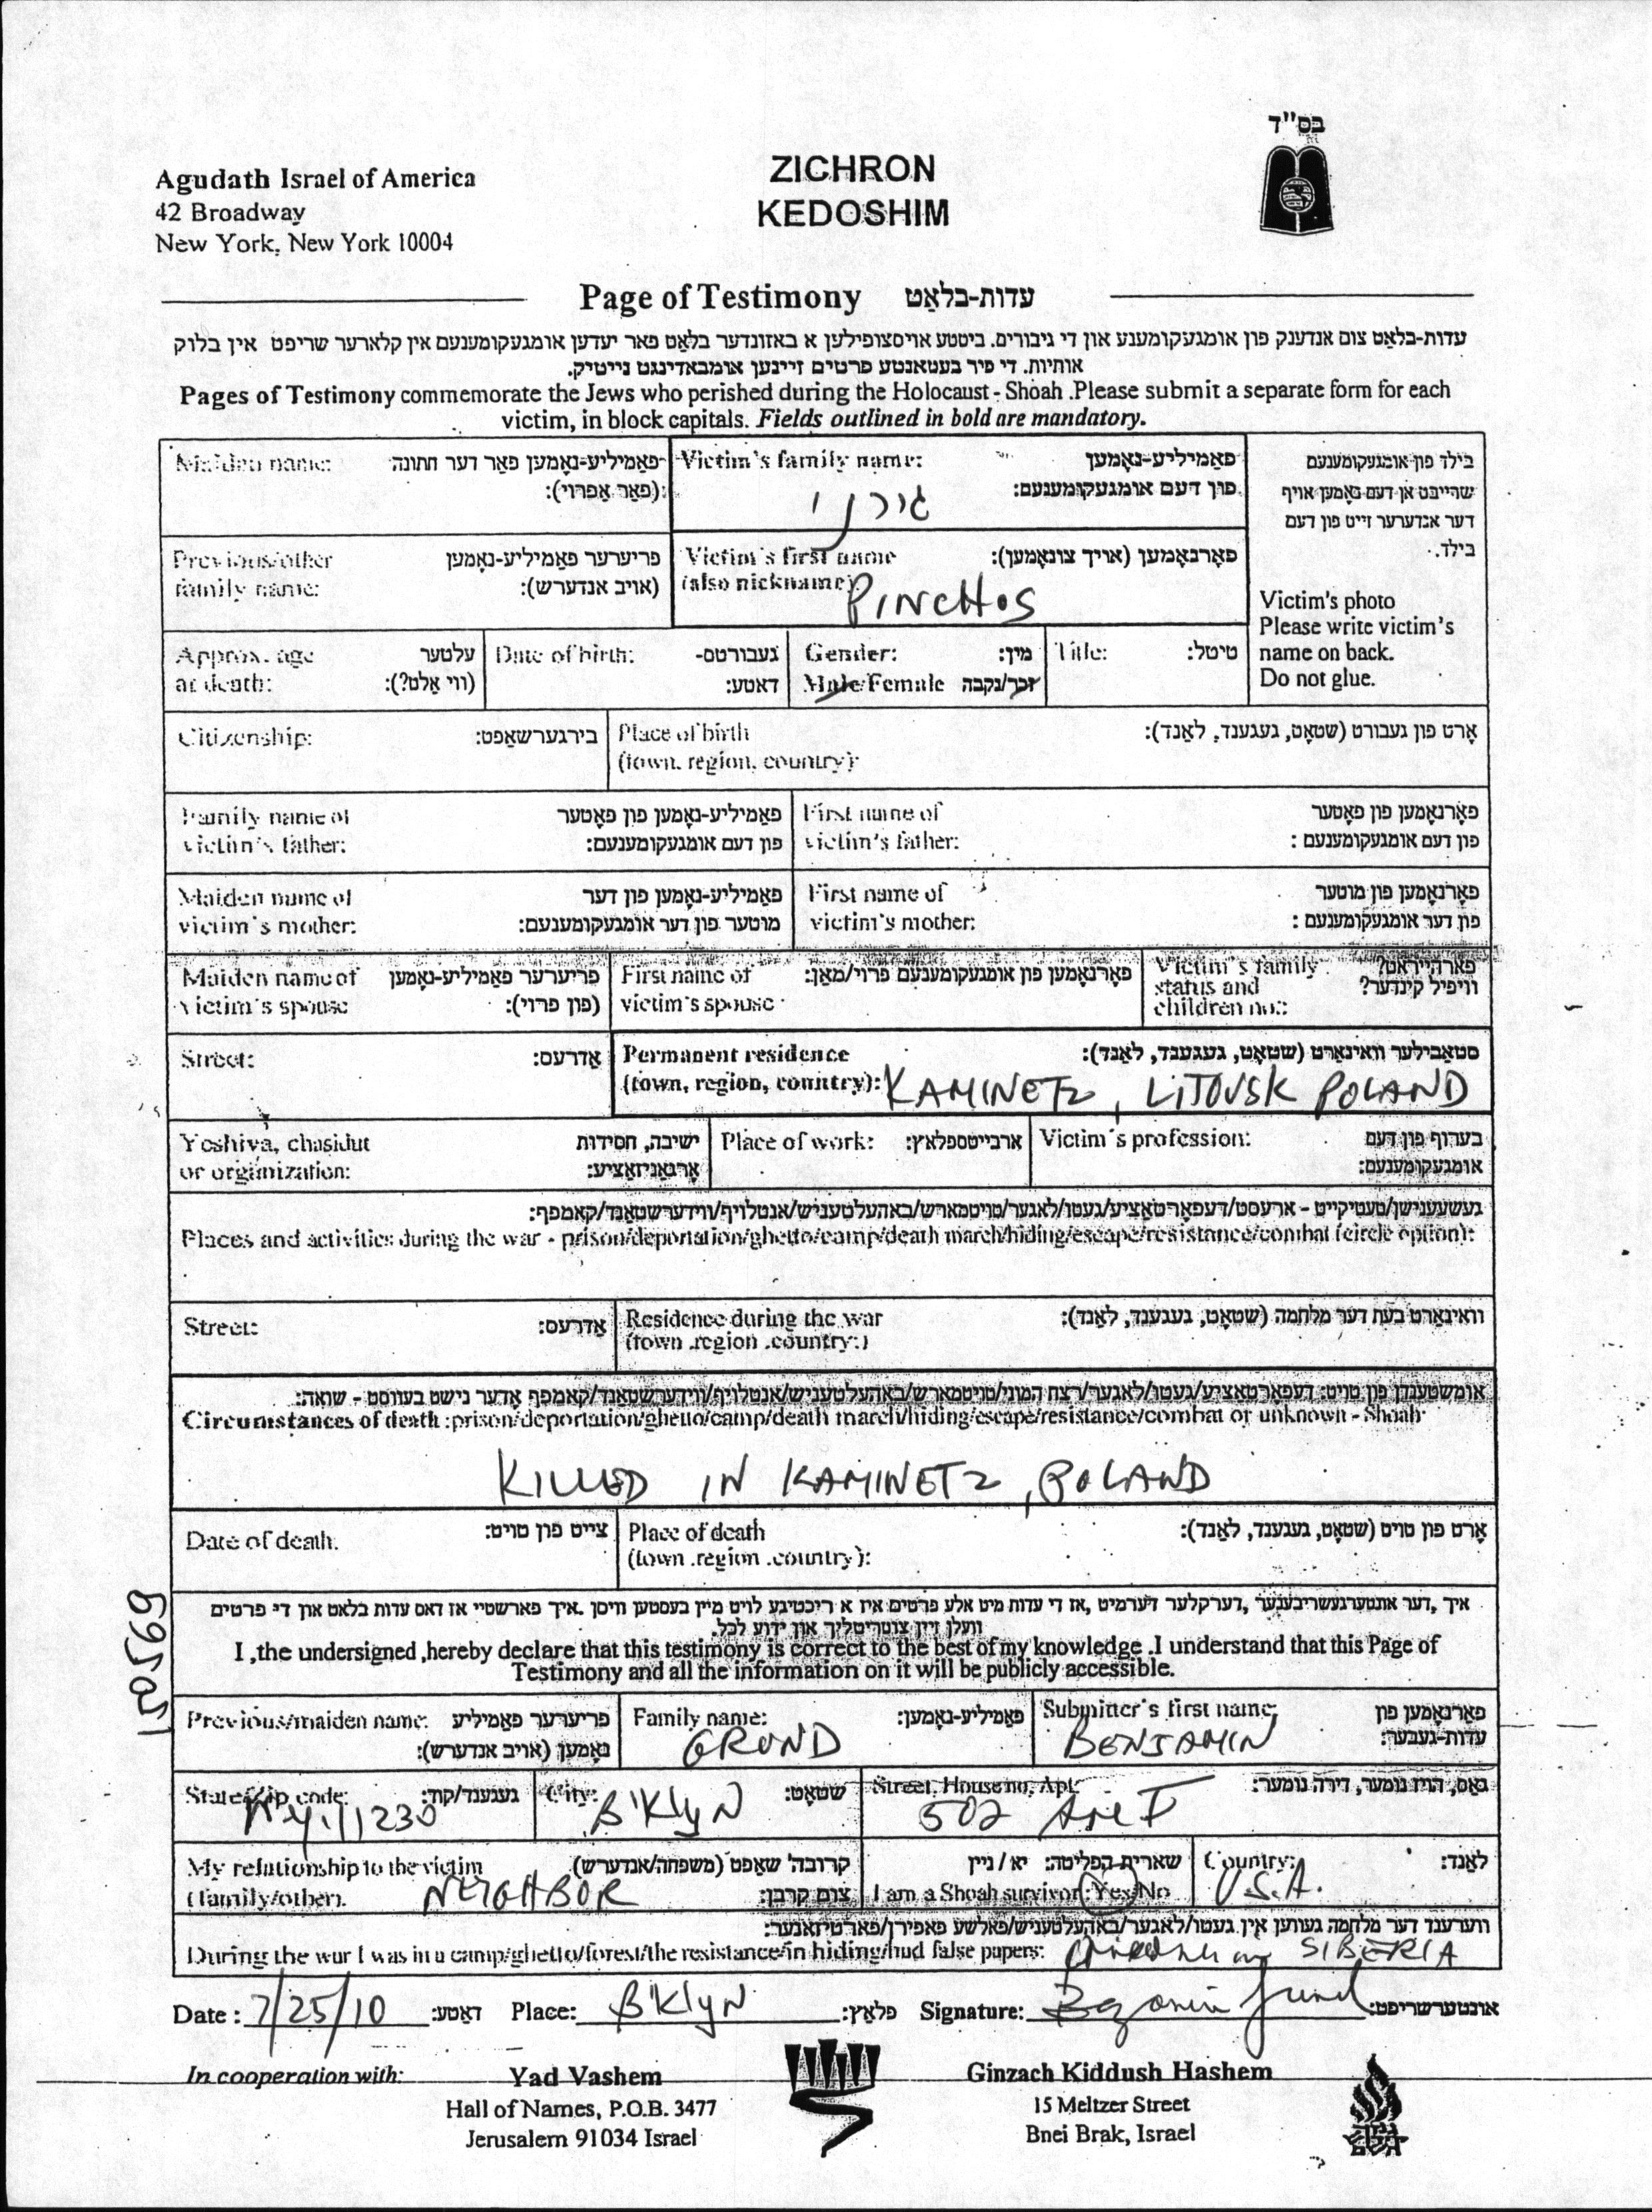 בס"ד
Agudath Israel of America
42 Broadway
New York, New York 10004
ZICHRON
KEDOSHIM
Page of Testimony עדות-בלאַט
עדות-בלאַט צום אנדענק פון אומגעקומענע און די גיבורים. ביטטע אויסצופילען א באזונדער בלאַט פאר יעדען אומגעקומענעם אין קלארער שריפט אין בלוק
אותיות. די פיר בעטאנטע פרטים זיינען אומבאדינגט נייטיק.
Pages of Testimony commemorate the Jews who perished during the Holocaust - Shoah .Please submit a separate form for each
victim, in block capitals. Fields outlined in bold are mandatory.
Maiden name: פאַמיליע-נאָמען פאַר דער חתונה
(פאַר אַפרוי):
Victim's family name: פאַמיליע-נאָמען
פון דעם אומגעקומענעם:
גורני
בילד פון אומגעקומענעם
שרייבט אן דעם נאָמען אויף
דער אנדערער זייט פון דעם
בילד.
Victim's photo
Please write victim's
name on back.
Do not glue.
Previous/other פריערער פאַמיליע-נאָמען
family name: (אויב אנדערש):
Victim's first name פאָרנאָמען (אויך צונאָמען):
(also nickname):
PINCHOS
Approx. age עלטער
at death: (ווי אַלט?):
Date of birth: געבורטס-
דאטע:
Gender: מין:
Male/Female זכר/נקבה
Title: טיטל:
Citizenship: בירגערשאַפט:
Place of birth אָרט פון געבורט (שטאָט, געגענד, לאַנד):
(town, region, country):
Family name of פאַמיליע-נאָמען פון פאָטער
victim's father: פון דעם אומגעקומענעם:
First name of פאָרנאָמען פון פאָטער
victim's father: פון דעם אומגעקומענעם :
Maiden name of פאַמיליע-נאָמען פון דער
victim's mother: מוטער פון דער אומגעקומענעם:
First name of פאָרנאָמען פון מוטער
victim's mother: פון דער אומגעקומענעם :
Maiden name of פריערער פאַמיליע-נאָמען
victim's spouse (פון פרוי):
First name of פאָרנאָמען פון אומגעקומענעם פרוי/מאַן:
victim's spouse
Victim's family פארהייראט?
status and וויפיל קינדער?
children no.:
Street: אַדרעס:
Permanent residence סטאַבילער וואוינאָרט (שטאָט, געגענד, לאַנד):
(town, region, country): KAMINETZ, LITOVSK POLAND
Yeshiva, chasidut ישיבה, חסידות
or organization: אָרגאַניזאַציע:
Place of work: ארבייטספלאץ:
Victim's profession: בערוף פון דעם
אומגעקומענעם:
געשעענישן/טעטיקייט - ארעסט/דעפאָרטאַציע/געטו/לאגער/טויטמארש/באהעלטעניש/אנטלויף/ווידערשטאַנד/קאמפף:
Places and activities during the war - prison/deportation/ghetto/camp/death march/hiding/escape/resistance/combat (circle option):
Street: אַדרעס:
Residence during the war וואוינאָרט בעת דער מלחמה (שטאָט, געגענד, לאַנד):
(town .region .country:)
אומשטענדן פון טויט: דעפאָרטאַציע/געטו/לאגער/רצח המוני/טויטמארש/באהעלטעניש/אנטלויף/ווידערשטאַנד/קאמפף אָדער נישט בעוווסט - שואה:
Circumstances of death :prison/deportation/ghetto/camp/death march/hiding/escape/resistance/combat or unknown - Shoah
KILLED IN KAMINETZ, POLAND
Date of death: צייט פון טויט:
Place of death אָרט פון טויט (שטאָט, געגענד, לאַנד):
(town .region .country):
איך ,דער אונטערגעשריבענער ,דערקלער דערמיט ,אז די עדות מיט אלע פרטים איז א ריכטיגע לויט מיין בעסטען וויסן .איך פארשטיי אז דאס עדות בלאט און די פרטים
וועלן זיין צוטריטליך און ידוע לכל.
I ,the undersigned ,hereby declare that this testimony is correct to the best of my knowledge .I understand that this Page of
Testimony and all the information on it will be publicly accessible.
150569
Previous/maiden name: פריערער פאַמיליע
נאָמען (אויב אנדערש):
Family name: פאַמיליע-נאָמען:
GRUND
Submitter's first name: פאָרנאָמען פון
עדות-געבער:
BENJAMIN
State/Zip code: געגענד/קוד:
N.Y. 11230
City: שטאָט:
B'KlyN
Street, House no, Apt: גאַס, הויז נומער, דירה נומער:
502 Ave F
My relationship to the victim קרובה' שאַפט (משפחה/אנדערש)
(family/other). NEIGHBOR צום קרבן:
שארית הפליטה: יא / ניין
I am a Shoah survivor: Yes/No
Country: לאַנד:
U.S.A.
ווערענד דער מלחמה געווען אין געטו/לאגער/באהעלטעניש/פאלשע פאפירן/פארטיזאנער:
During the war I was in a camp/ghetto/forest/the resistance/in hiding/had false papers: SIBERIA
Date : 7/25/10 דאַטע: Place: B'KlyN פלאץ: Signature: אונטערשריפט:
In cooperation with:
Yad Vashem
Hall of Names, P.O.B. 3477
Jerusalem 91034 Israel
Ginzach Kiddush Hashem
15 Meltzer Street
Bnei Brak, Israel